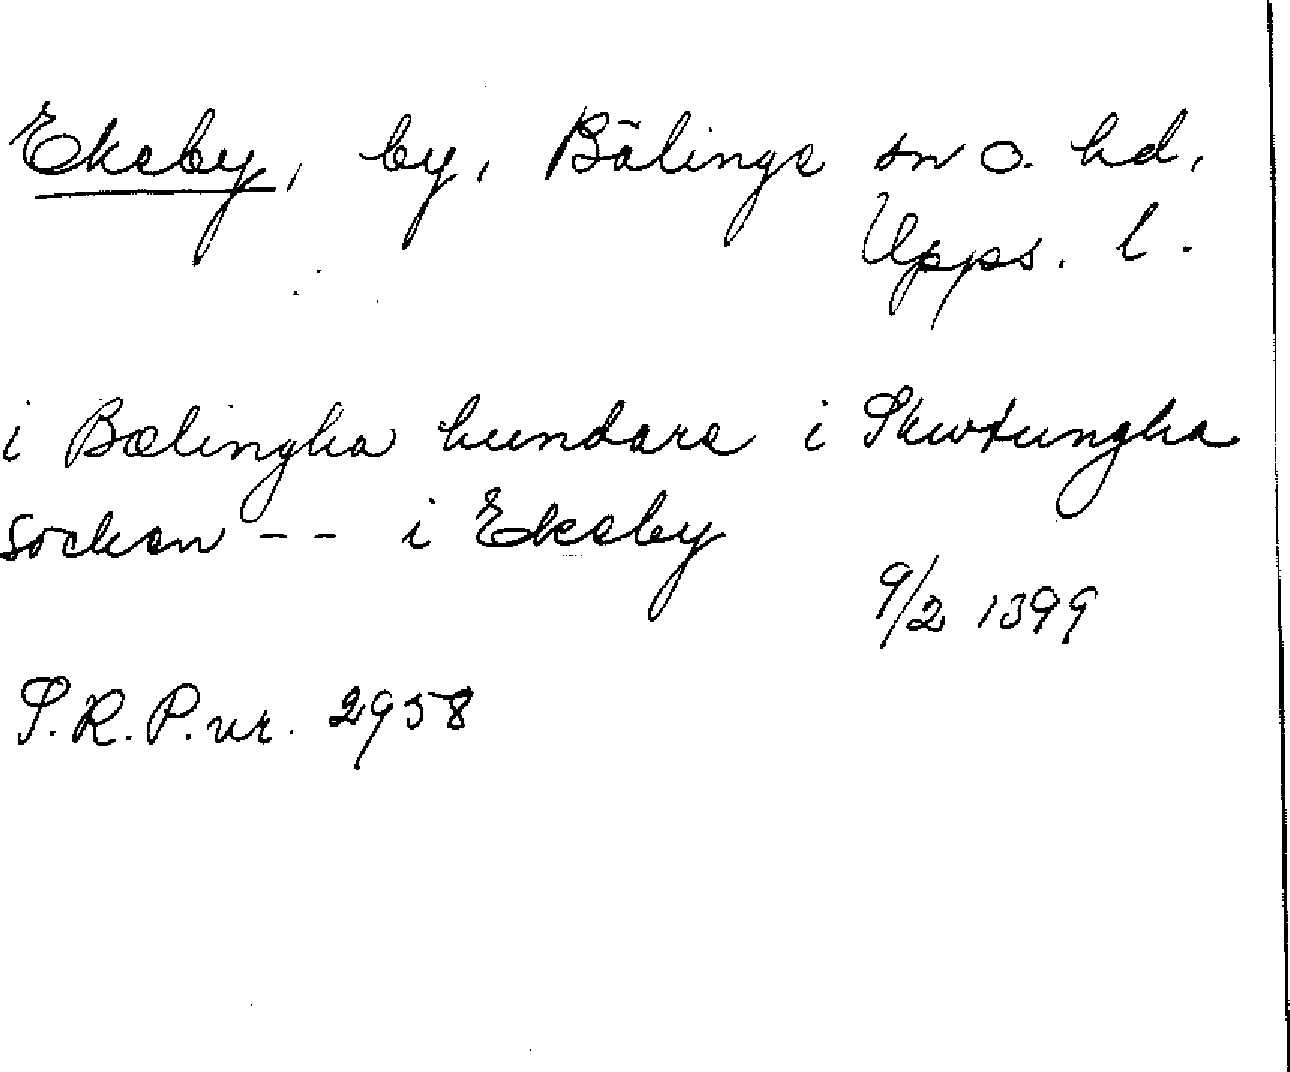 Ekeby, by, Bälinge sn o. hd,
Upps. l.
i Bælingha hundare i Skwtungha
socken -- i Ekeby
9/2 1399
S.R.P. nr. 2958